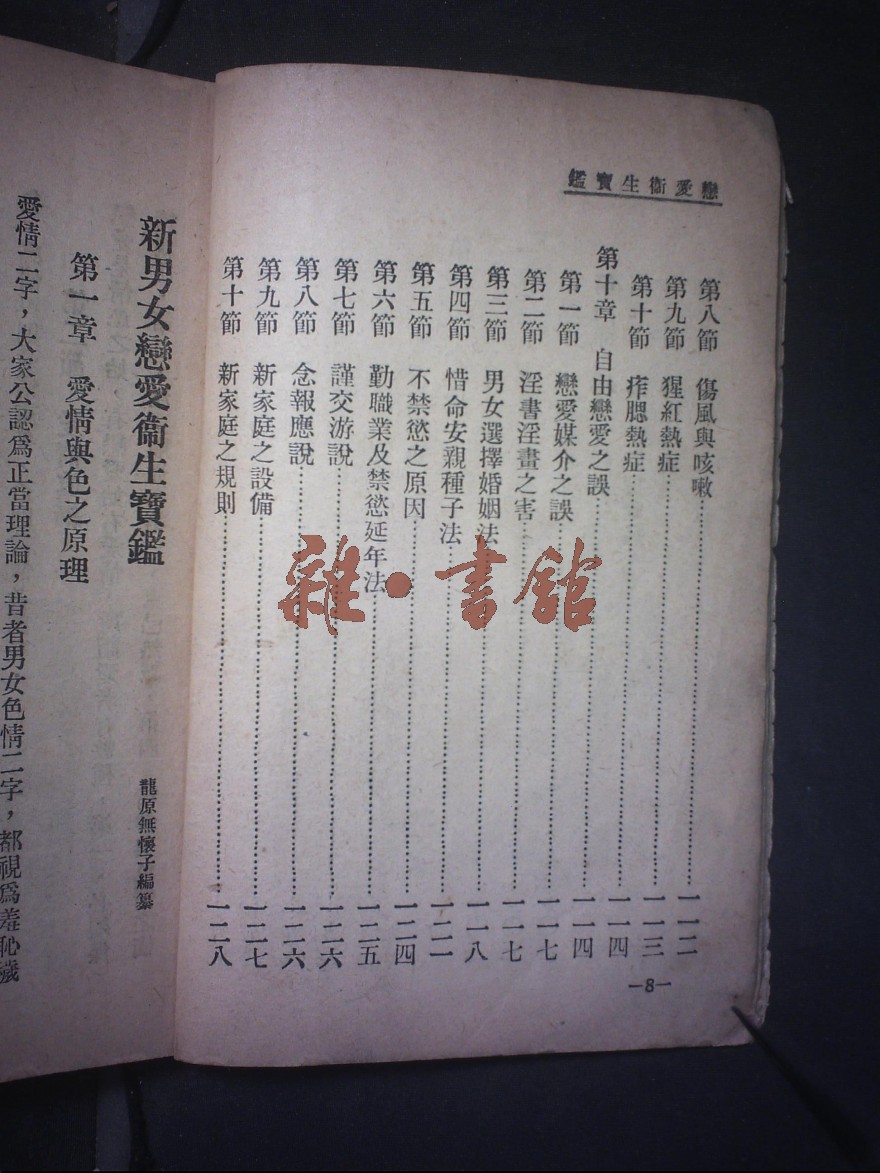 戀愛衞生寶鑑
第八節　傷風與咳嗽……一一二
第九節　猩紅熱症……一一三
第十節　痄腮熱症……一一四
第十章　自由戀愛之誤……一一四
第一節　戀愛媒介之誤……一一七
第二節　淫書淫畫之害……一一七
第三節　男女選擇婚姻法……一一八
第四節　惜命安親種子法……一二一
第五節　不禁慾之原因……一二四
第六節　勤職業及禁慾延年法……一二五
第七節　謹交游說……一二六
第八節　念報應說……一二六
第九節　新家庭之設備……一二七
第十節　新家庭之規則……一二八
—8—
新男女戀愛衞生寶鑑
龍原無懷子編纂
第一章　愛情與色之原理
愛情二字，大家公認爲正當理論，昔者男女色情二字，都視爲羞恥穢
雜·書館